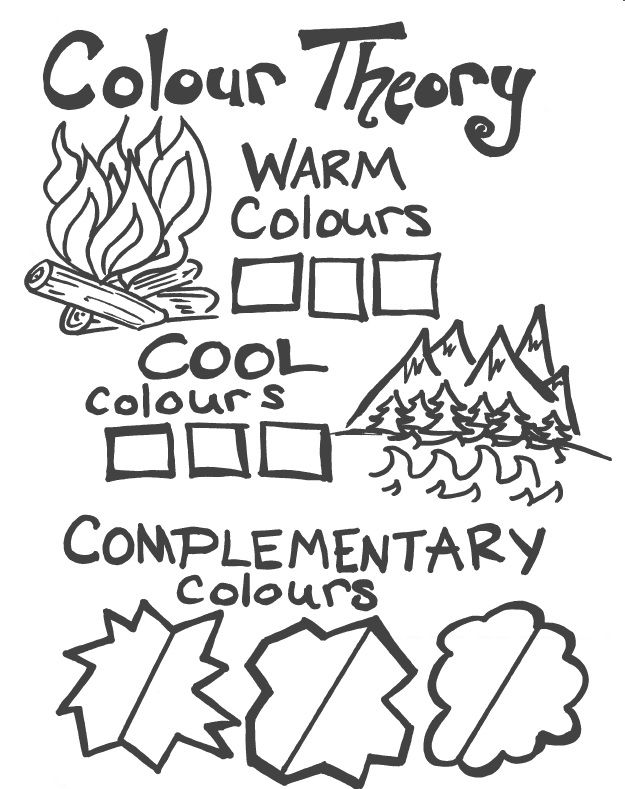 Colour Theory
WARM
Colours
COOL
Colours
COMPLEMENTARY
Colours